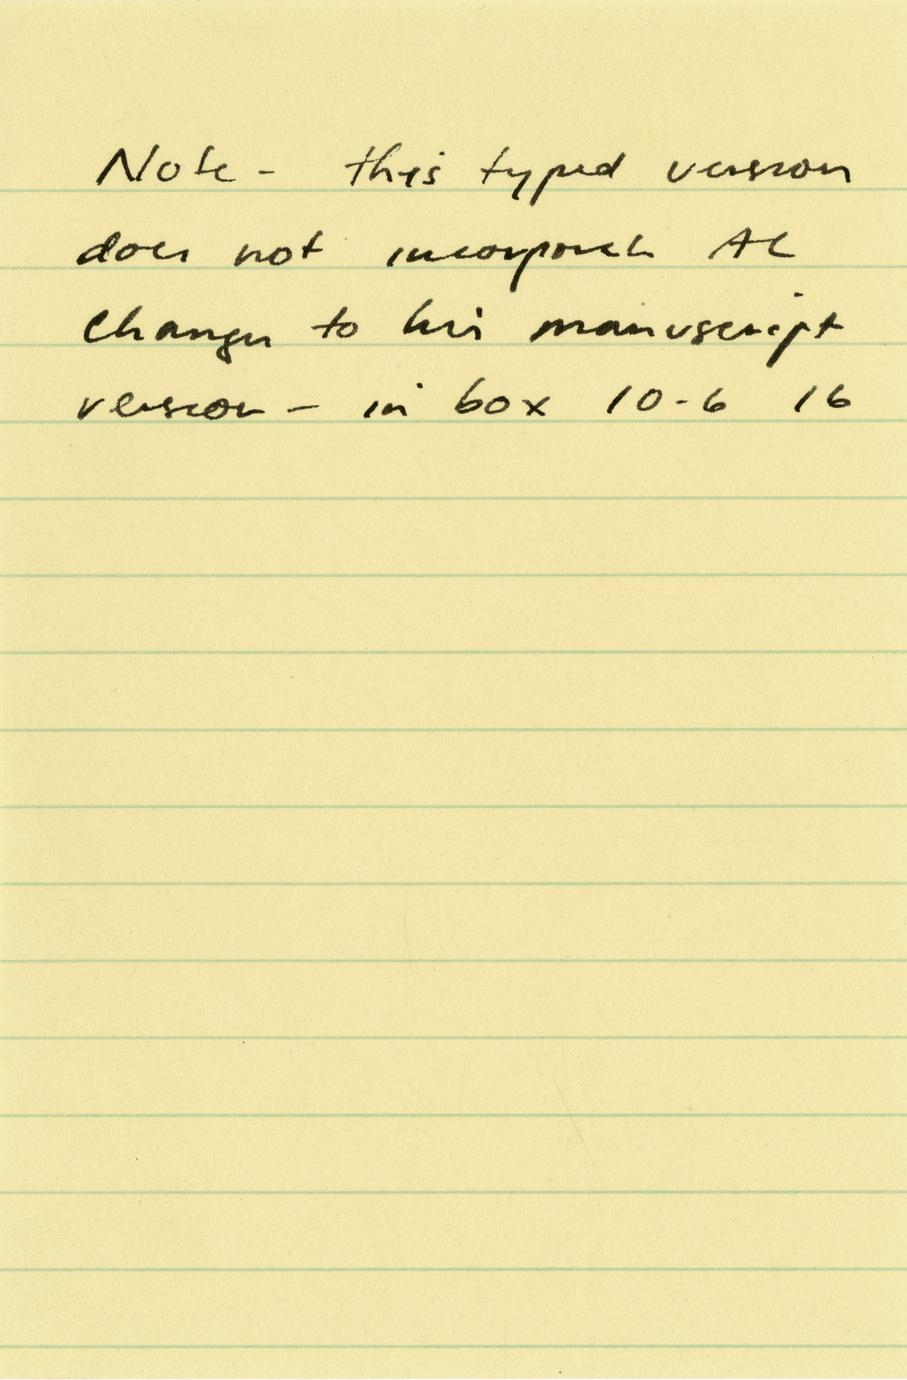 Note - this typed version
does not incorporate AC
changes to his manuscript
version - in box 10-6 16